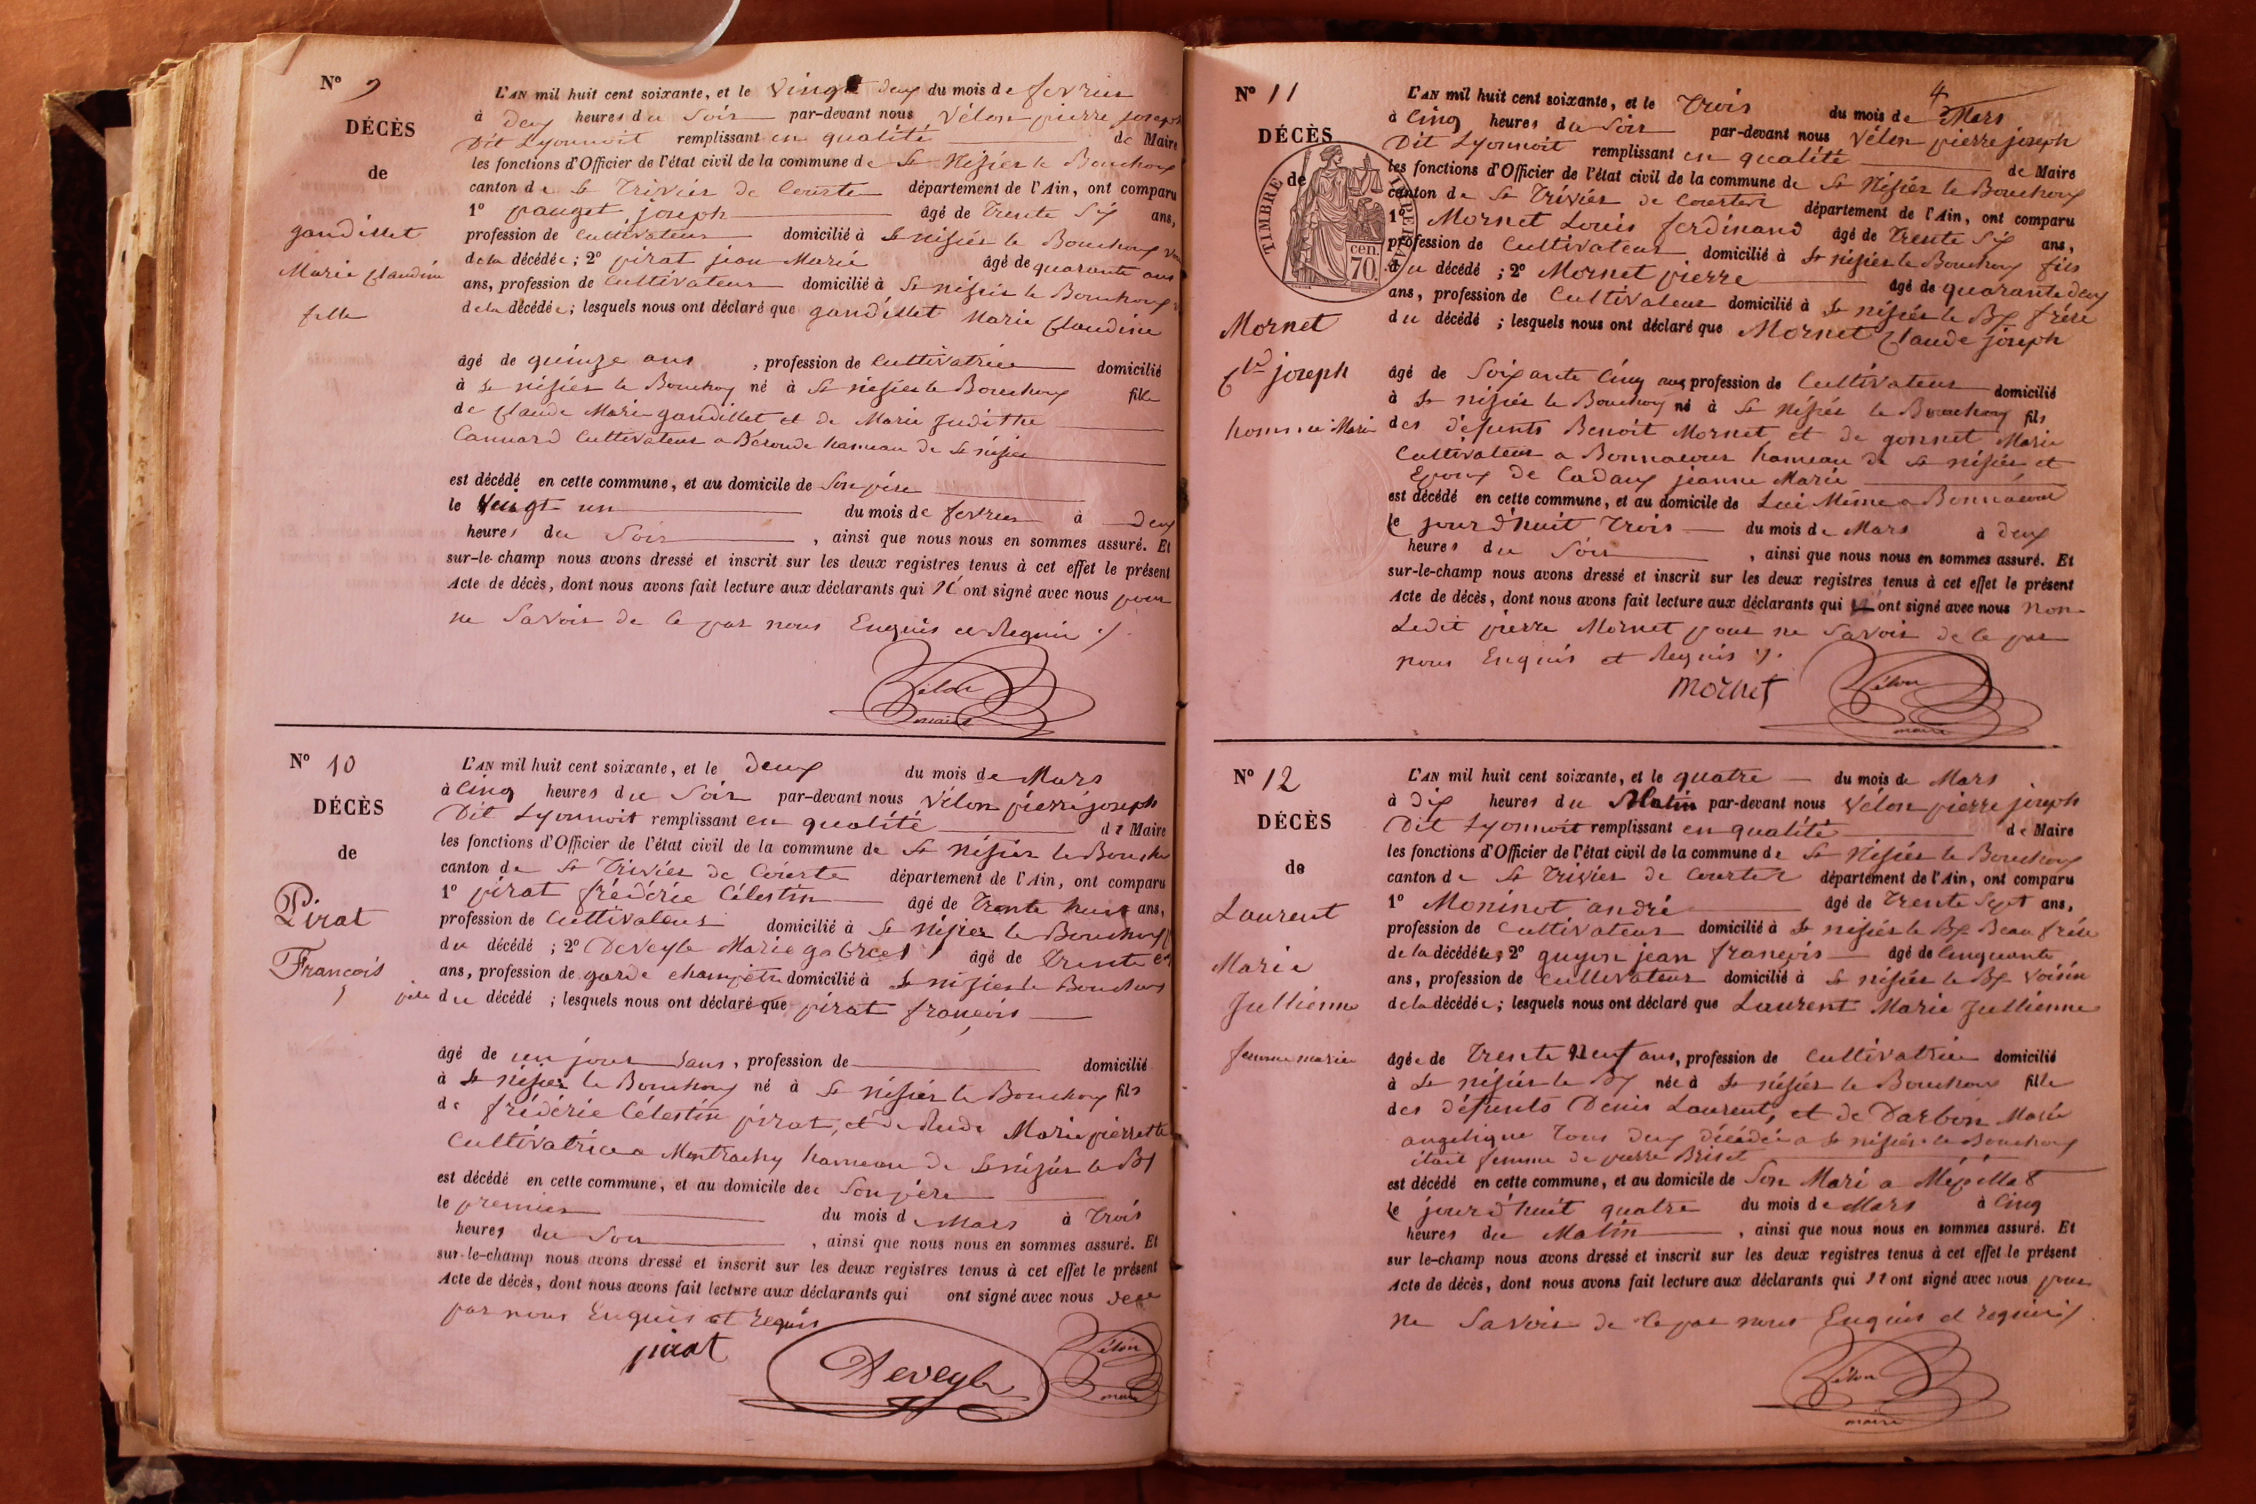 N° 9
DÉCÈS
de
gandillet
Marie Claudine
fille
L'AN mil huit cent soixante, et le vingt deux du mois de fevrier
à deux heures du Soir par-devant nous Vélon pierre joseph
Dit Lyonnoit remplissant en qualité de Maire
les fonctions d'Officier de l'état civil de la commune de St Nisier le Bouchoux
canton de St Trivier de Courte département de l'Ain, ont comparu
1° pauget joseph âgé de Trente Six ans,
profession de Cultivateur domicilié à St nisier le Bouchoux
de la décédée ; 2° pirat jean Marie âgé de quarante ans
ans, profession de Cultivateur domicilié à St nisier le Bouchoux
de la décédée ; lesquels nous ont déclaré que gandillet Marie Claudine
âgé de quinze ans , profession de Cultivatrice domicilié
à St nisier le Bouchoux né à St nisier le Bouchoux fille
de Claude Marie gandillet et de Marie Judithe
Cannard Cultivateur a Béroude hameau de St nisier
est décédé en cette commune, et au domicile de Son père
le Vingt un du mois de fevrier à deux
heures du Soir , ainsi que nous nous en sommes assuré. Et
sur-le-champ nous avons dressé et inscrit sur les deux registres tenus à cet effet le présent
Acte de décès, dont nous avons fait lecture aux déclarants qui N' ont signé avec nous pour
ne Savoir de ce par nous Enquis et Requis ./.
Vélon
maire
N° 10
DÉCÈS
de
Pirat
François
L'AN mil huit cent soixante, et le deux du mois de Mars
à Cinq heures du Soir par-devant nous Vélon pierre joseph
Dit Lyonnoit remplissant en qualité de Maire
les fonctions d'Officier de l'état civil de la commune de St Nisier le Bouchoux
canton de St Trivier de Courte département de l'Ain, ont comparu
1° pirat frédéric Célestin âgé de Trente huit ans,
profession de Cultivateur domicilié à St Nisier le Bouchoux
du décédé ; 2° Deveyle Marie gabriel âgé de Trente
ans, profession de garde champêtre domicilié à St nisier le Bouchoux
du décédé ; lesquels nous ont déclaré que pirat françois
âgé de un jour ans, profession de domicilié
à St Nisier le Bouchoux né à St Nisier le Bouchoux fils
de frédéric Célestin pirat, et de Marie pierrette
Cultivatrice a Montrachy hameau de St nisier le Bx
est décédé en cette commune, et au domicile de Son père
le premier du mois de Mars à Trois
heures du Soir , ainsi que nous nous en sommes assuré. Et
sur-le-champ nous avons dressé et inscrit sur les deux registres tenus à cet effet le présent
Acte de décès, dont nous avons fait lecture aux déclarants qui ont signé avec nous de ce
par nous Enquis et requis
pirat
Deveyle
Vélon
maire
4
N° 11
DÉCÈS
de
TIMBRE IMPERIAL
70 cen.
Mornet
Cde joseph
homme Marié
L'AN mil huit cent soixante, et le Trois du mois de Mars
à Cinq heures du Soir par-devant nous Vélon pierre joseph
Dit Lyonnoit remplissant en qualité de Maire
les fonctions d'Officier de l'état civil de la commune de St Nisier le Bouchoux
canton de St Trivier de Courtes département de l'Ain, ont comparu
1° Mornet Louis ferdinand âgé de Trente Six ans,
profession de Cultivateur domicilié à St nisier le Bouchoux fils
du décédé ; 2° Mornet pierre âgé de quarante deux
ans, profession de Cultivateur domicilié à St nisier le Bx frère
du décédé ; lesquels nous ont déclaré que Mornet Claude joseph
âgé de Soixante Cinq ans profession de Cultivateur domicilié
à St nisier le Bouchoux né à St Nisier le Bouchoux fils
des défunts Benoit Mornet et de gonnet Marie
Cultivateur a Bonnacour hameau de St nisier et
Epoux de Cadany jeanne Marie
est décédé en cette commune, et au domicile de Lui Même a Bonnacour
le jour d'huit Trois du mois de Mars à deux
heures du Soir , ainsi que nous nous en sommes assuré. Et
sur-le-champ nous avons dressé et inscrit sur les deux registres tenus à cet effet le présent
Acte de décès, dont nous avons fait lecture aux déclarants qui ont signé avec nous non
Ledit pierre Mornet pour ne Savoir de ce par
nous Enquis et Requis ./.
Mornet
Vélon
maire
N° 12
DÉCÈS
de
Laurent
Marie
Jullienne
femme mariée
L'AN mil huit cent soixante, et le quatre du mois de Mars
à Dix heures du Matin par-devant nous Vélon pierre joseph
Dit Lyonnoit remplissant en qualité de Maire
les fonctions d'Officier de l'état civil de la commune de St Nisier le Bouchoux
canton de St Trivier de Courtes département de l'Ain, ont comparu
1° Moninot andré âgé de Trente Sept ans,
profession de Cultivateur domicilié à St nisier le Bx Beau frère
de la décédée ; 2° guyon jean françois âgé de Cinquante
ans, profession de Cultivateur domicilié à St nisier le Bx Voisin
de la décédée ; lesquels nous ont déclaré que Laurent Marie Jullienne
âgée de Trente Neuf ans, profession de Cultivatrice domicilié
à St nisier le Bx née à St nisier le Bouchoux fille
des défunts Denis Laurent, et de Darbon Marie
angelique Tous deux décédés a St nisier le Bouchoux
était femme de pierre Briset
est décédé en cette commune, et au domicile de Son Mari a Mépillat
le jour d'huit quatre du mois de Mars à Cinq
heures du Matin , ainsi que nous nous en sommes assuré. Et
sur le-champ nous avons dressé et inscrit sur les deux registres tenus à cet effet le présent
Acte de décès, dont nous avons fait lecture aux déclarants qui n' ont signé avec nous pour
ne Savoir de ce par nous Enquis et requis ./.
Vélon
maire